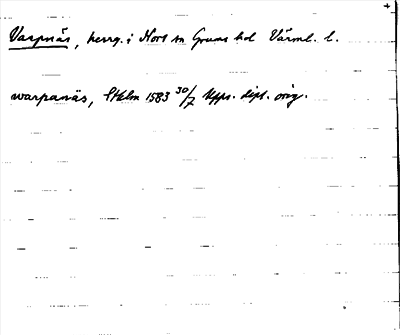 Varpnäs, herrg. i Nors sn Grums hd Värml. l.
warpanäs, Sthlm 1583 30/7 Upps. dipl. orig.